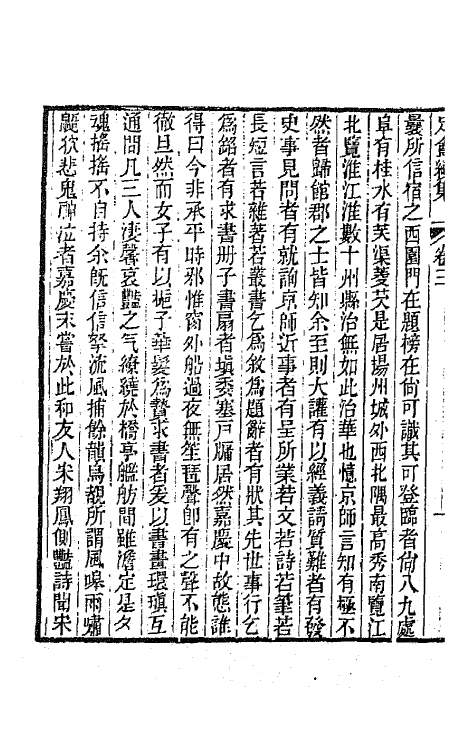 定盦續集 卷三 一
曩所信宿之西園門在題榜在尚可識其可登臨者尚八九處
阜有桂水有芙渠菱芡是居揚州城外西北隅最高秀南覽江
北覽淮江淮數十州縣治無如此治華也憶京師言知有極不
然者歸館郡之士皆知余至則大讙有以經義請質難者有發
史事見問者有就詢京師近事者有呈所業若文若詩若筆若
長短言若雜著若叢書乞爲敘爲題辭者有狀其先世事行乞
爲銘者有求書册子書扇者塡委塞戸牖居然嘉慶中故態誰
得曰今非承平時邪惟窗外船過夜無笙琶聲卽有之聲不能
徹旦然而女子有以梔子華髮爲贄求書者爰以書畫環瑱互
通問凡三人淒馨哀豔之气繚繞於橋亭艦舫閒雖澹定是夕
魂搖搖不自持余旣信信拏流風捕餘韻烏覩所謂風嘷雨嘯
鼯狖悲鬼神泣者嘉慶末嘗於此和友人宋翔鳳側豔詩聞宋